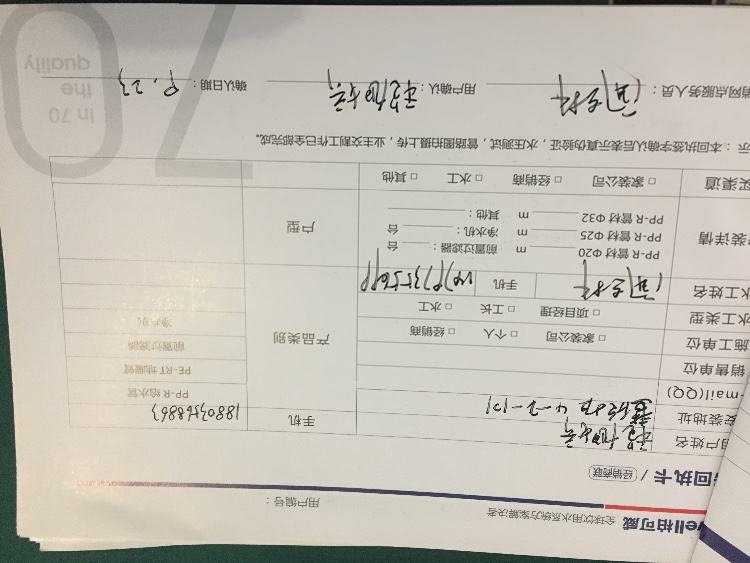 well柏可威 全球饮用水系统方案解决者
回执卡 / 经销商联 用户编号：
用户姓名 手机 18803568863
安装地址 4-2-121
mail(QQ) PP-R 给水管
销售单位 PE-RT 地暖管
施工单位 □ 家装公司 □ 个人 □ 经销商 产品类别 前置过滤器
水工类型 □ 项目经理 □ 工长 □ 水工 净水机
水工姓名 手机
装详情 PP-R 管材 Φ20 m 前置过滤器： 台 户型
PP-R 管材 Φ25 m 净水机： 台
PP-R 管材 Φ32 m 其他：
渠道 □ 家装公司 □ 经销商 □ 水工 □ 其他
示：本回执签字确认后表示真伪验证，水压测试，管路图拍摄上传，业主交割工作已全部完成。
网点服务人员： 用户确认： 确认日期：9.23
70
In 70
the
quality